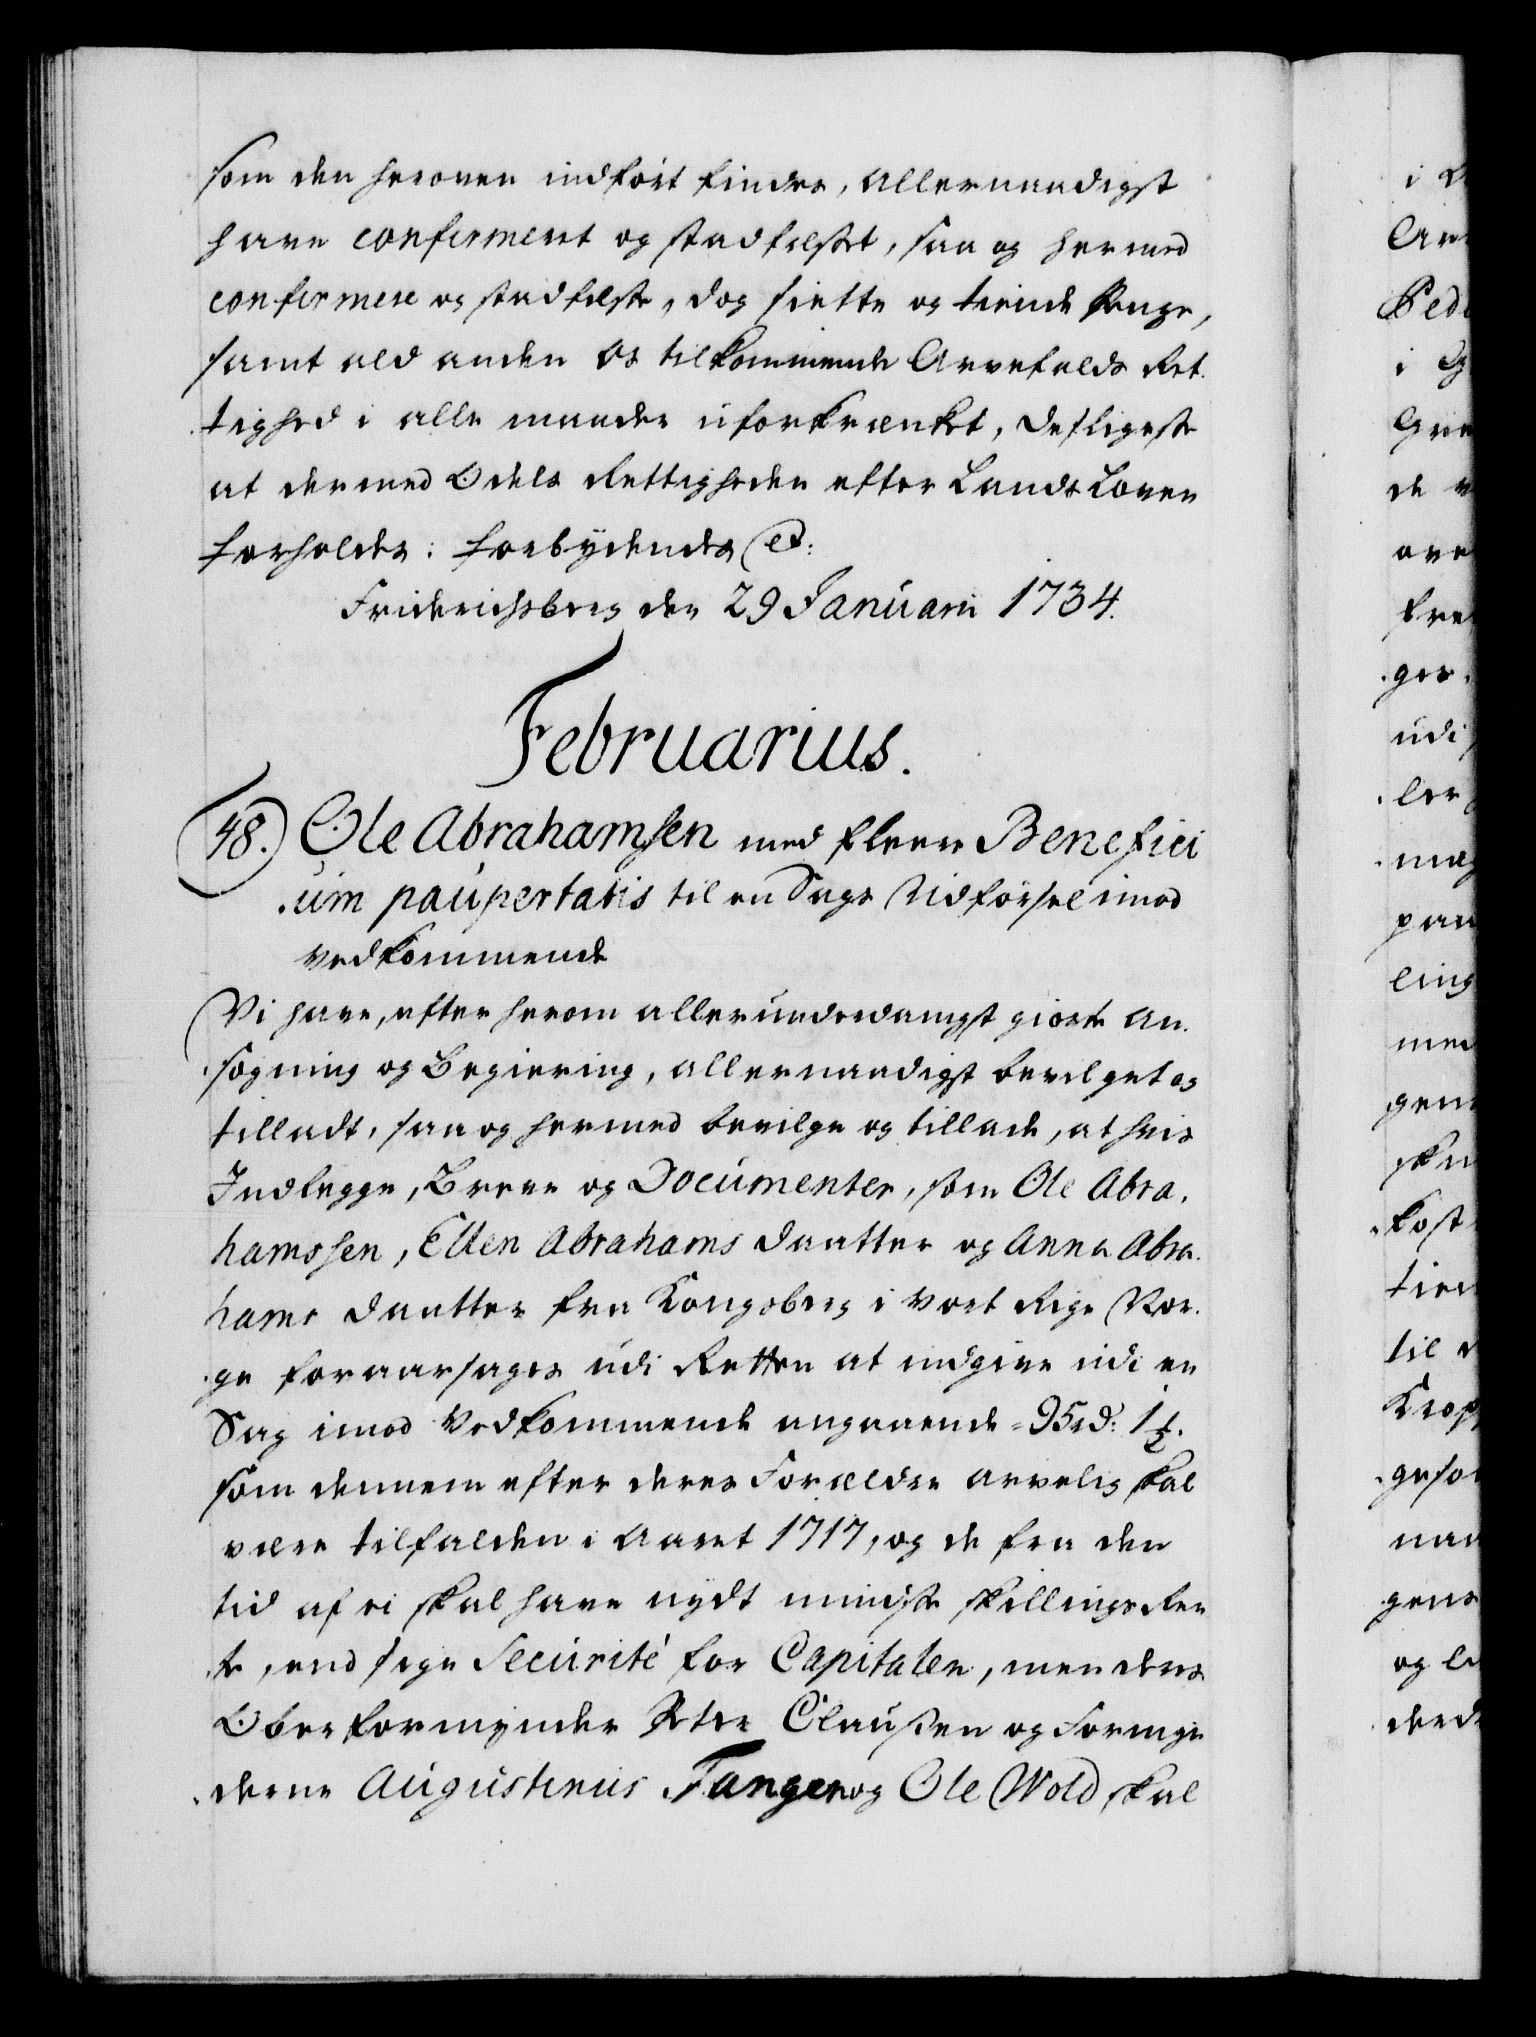 som den heroven indført findes, allernaadigst
have confirmert og stadfæstet, saa og hermed
confirmere og stadfæste, dog siette og tiende Penge,
samt ald anden Os tilkommende Arvefalds Ret-
tighed i alle maader uforkrænket, desligeste
at dermed Odels Rettigheden efter Lands Loven
forholdes. forbydendes etc:
Friderichsberg den 29 Januarii 1734.
Februarius.
48. Ole Abrahamsen med fleere Benefici
um paupertatis til en Sags Udførsel imod
vedkommende
Vi have, efter herom allerunderdanigst giorte An-
søgning og Begiering, allernaadigst bevilget og
tilladt, saa og hermed bevilge og tillade, at hvis
Indlegge, Breve og Documenter, som Ole Abra-
hamssen, Ellen Abrahams Daatter og Anna Abra-
hams Daatter fra Kongsberg i vort Rige Nor-
ge foraarsages udi Retten at indgive udi en
Sag imod Vedkommende angaaende 95 rd: 1½.
som dennem efter deres Forældre arvelig skal
være tilfalden i Aaret 1717, og de fra den
tid af ei skal have nydt mindste skillings Ren
te, end sige Securité for Capitalen, men deres
Oberformynder Peter Claußen og Formyn
derne Augustinus Tangen og Ole Wold skal
i
Ped
i
de
ove
fre
ges
udi
ler
mæ
paa
ling
med
kost
tien
til
Krop
og